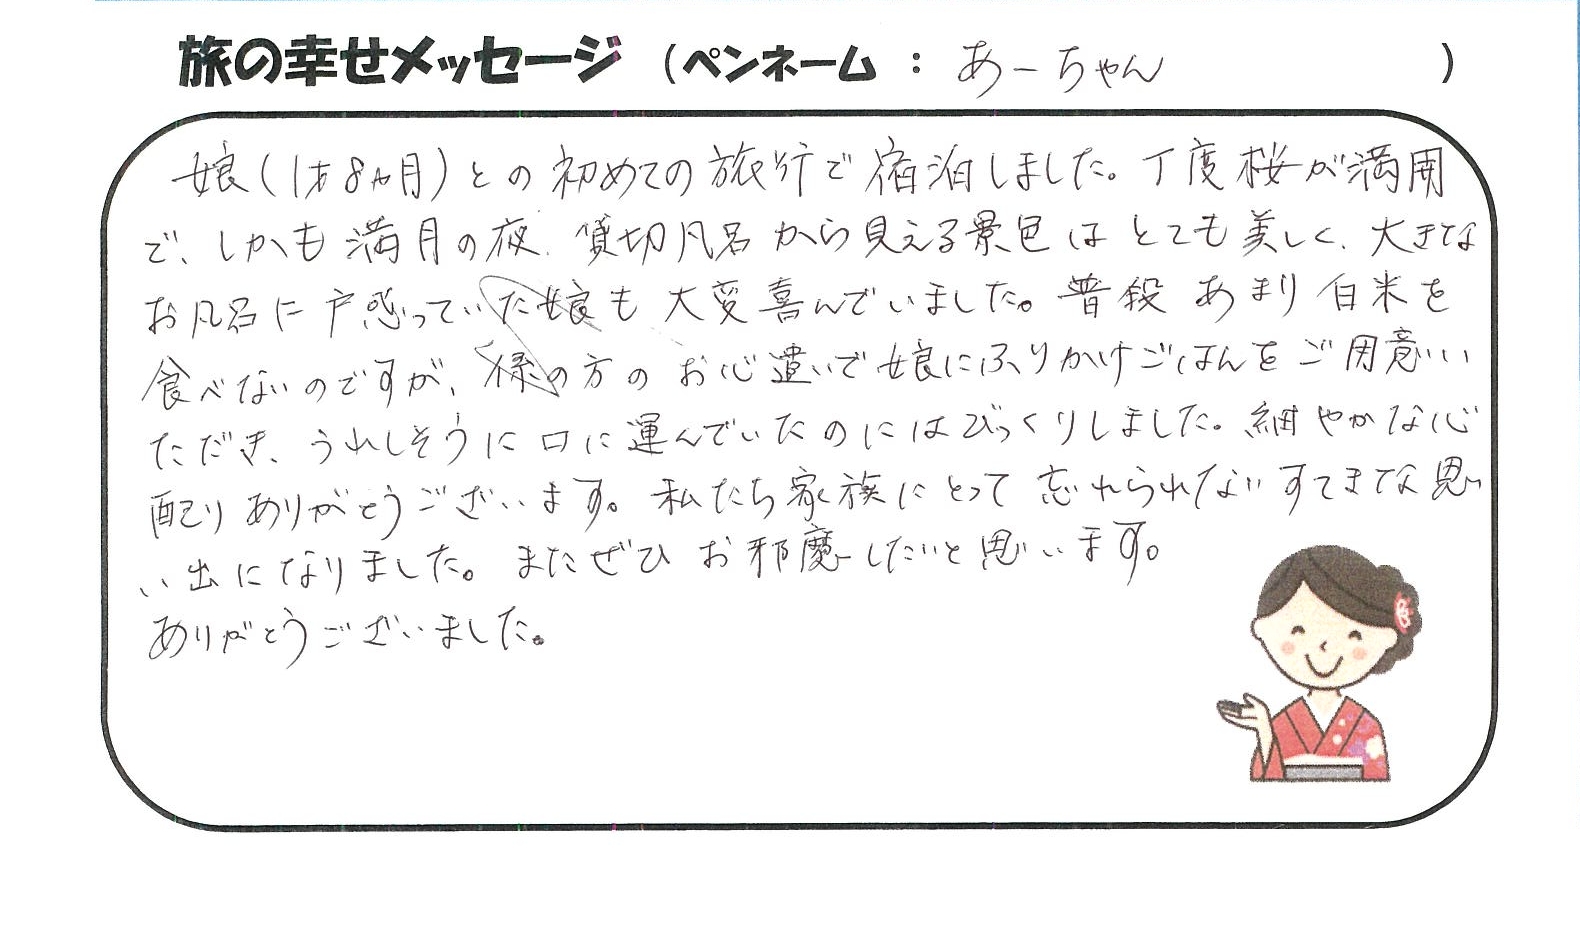 旅の幸せメッセージ (ペンネーム : あーちゃん )
娘(1才8ヶ月)との初めての旅行で宿泊しました。丁度桜が満開
で、しかも満月の夜、貸切風呂から見える景色はとても美しく、大きな
お風呂に戸惑っていた娘も大変喜んでいました。普段あまり白米を
食べないのですが、係の方のお心遣いで娘にふりかけごはんをご用意い
ただき、うれしそうに口に運んでいたのにはびっくりしました。細やかな心
配りありがとうございます。私たち家族にとって忘れられないすてきな思
い出になりました。またぜひお邪魔したいと思います。
ありがとうございました。